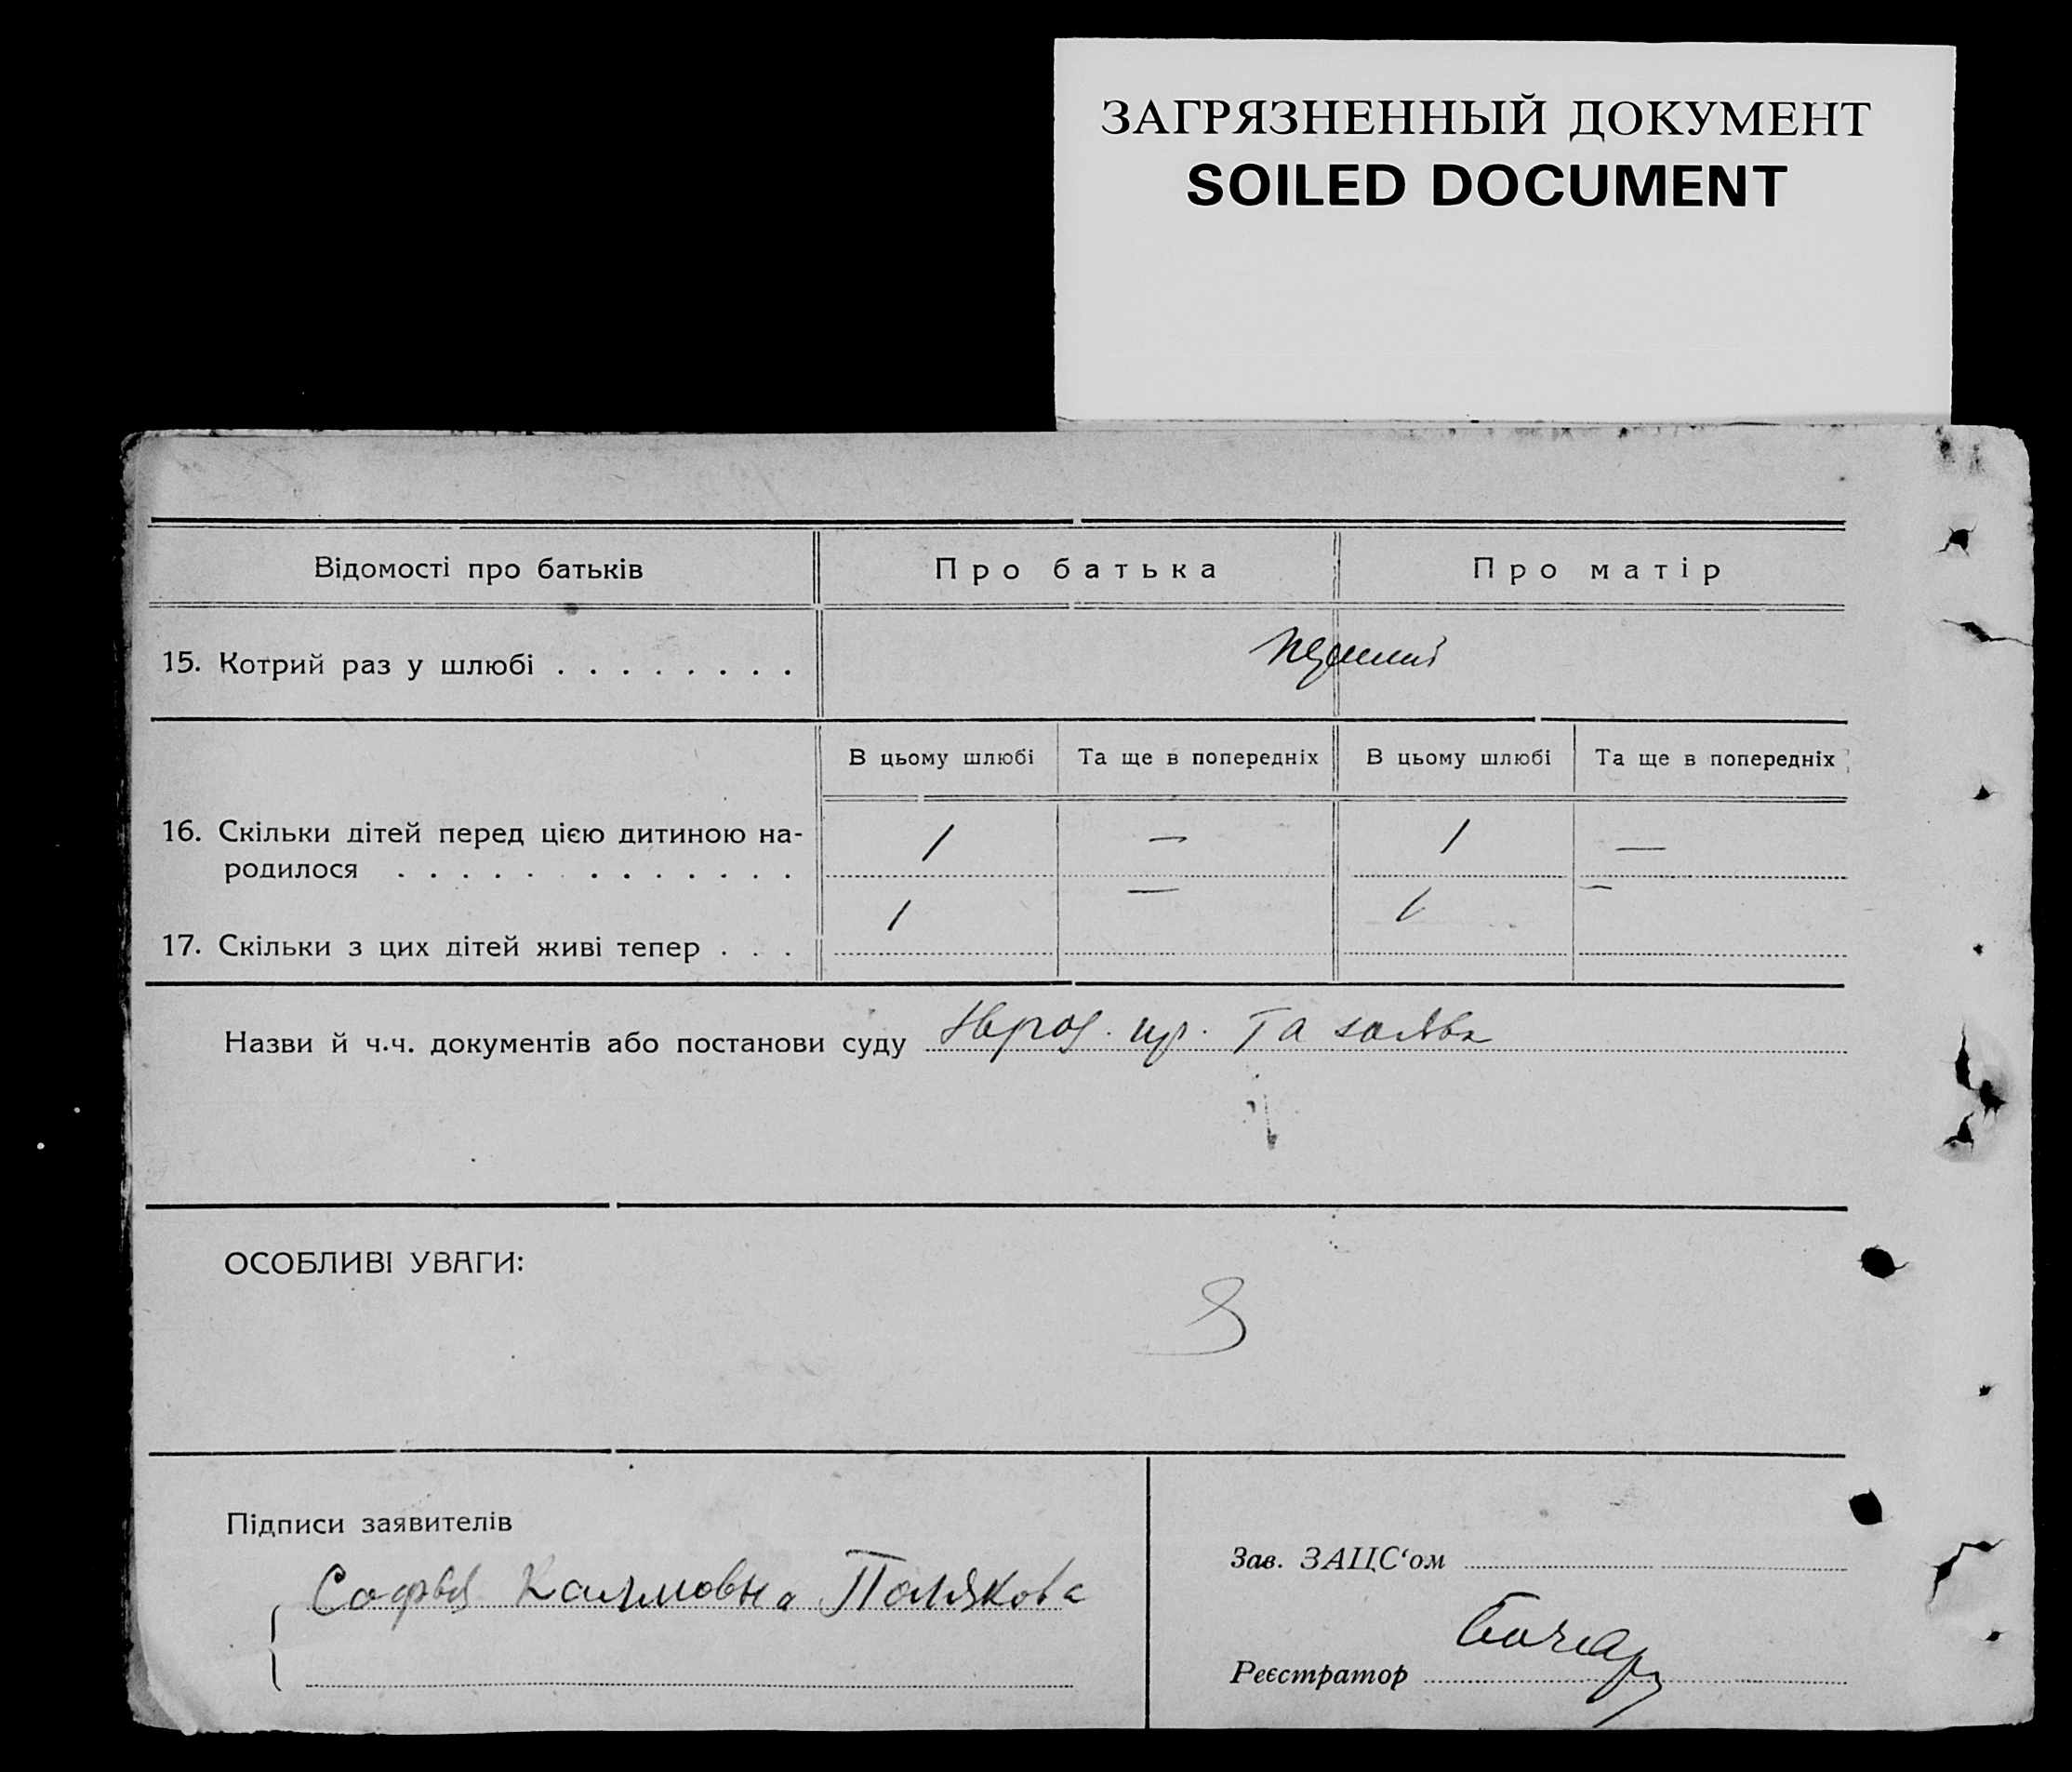 ЗАГРЯЗНЕННЫЙ ДОКУМЕНТ
SOILED DOCUMENT
Відомості про батьків Про батька Про матір
15. Котрий раз у шлюбі . . . . . . . .
В цьому шлюбі Та ще в попередніх В цьому шлюбі Та ще в попередніх
16. Скільки дітей перед цією дитиною на-
родилося . . . . . . . . . . . . . 1 — 1 —
17. Скільки з цих дітей живі тепер . . . 1 — 1 —
Назви й ч.ч. документів або постанови суду та заява
ОСОБЛИВІ УВАГИ:
Підписи заявителів
Зав. ЗАЦС‘ом
Софья Калмовна Полякова
Реєстратор Бочар